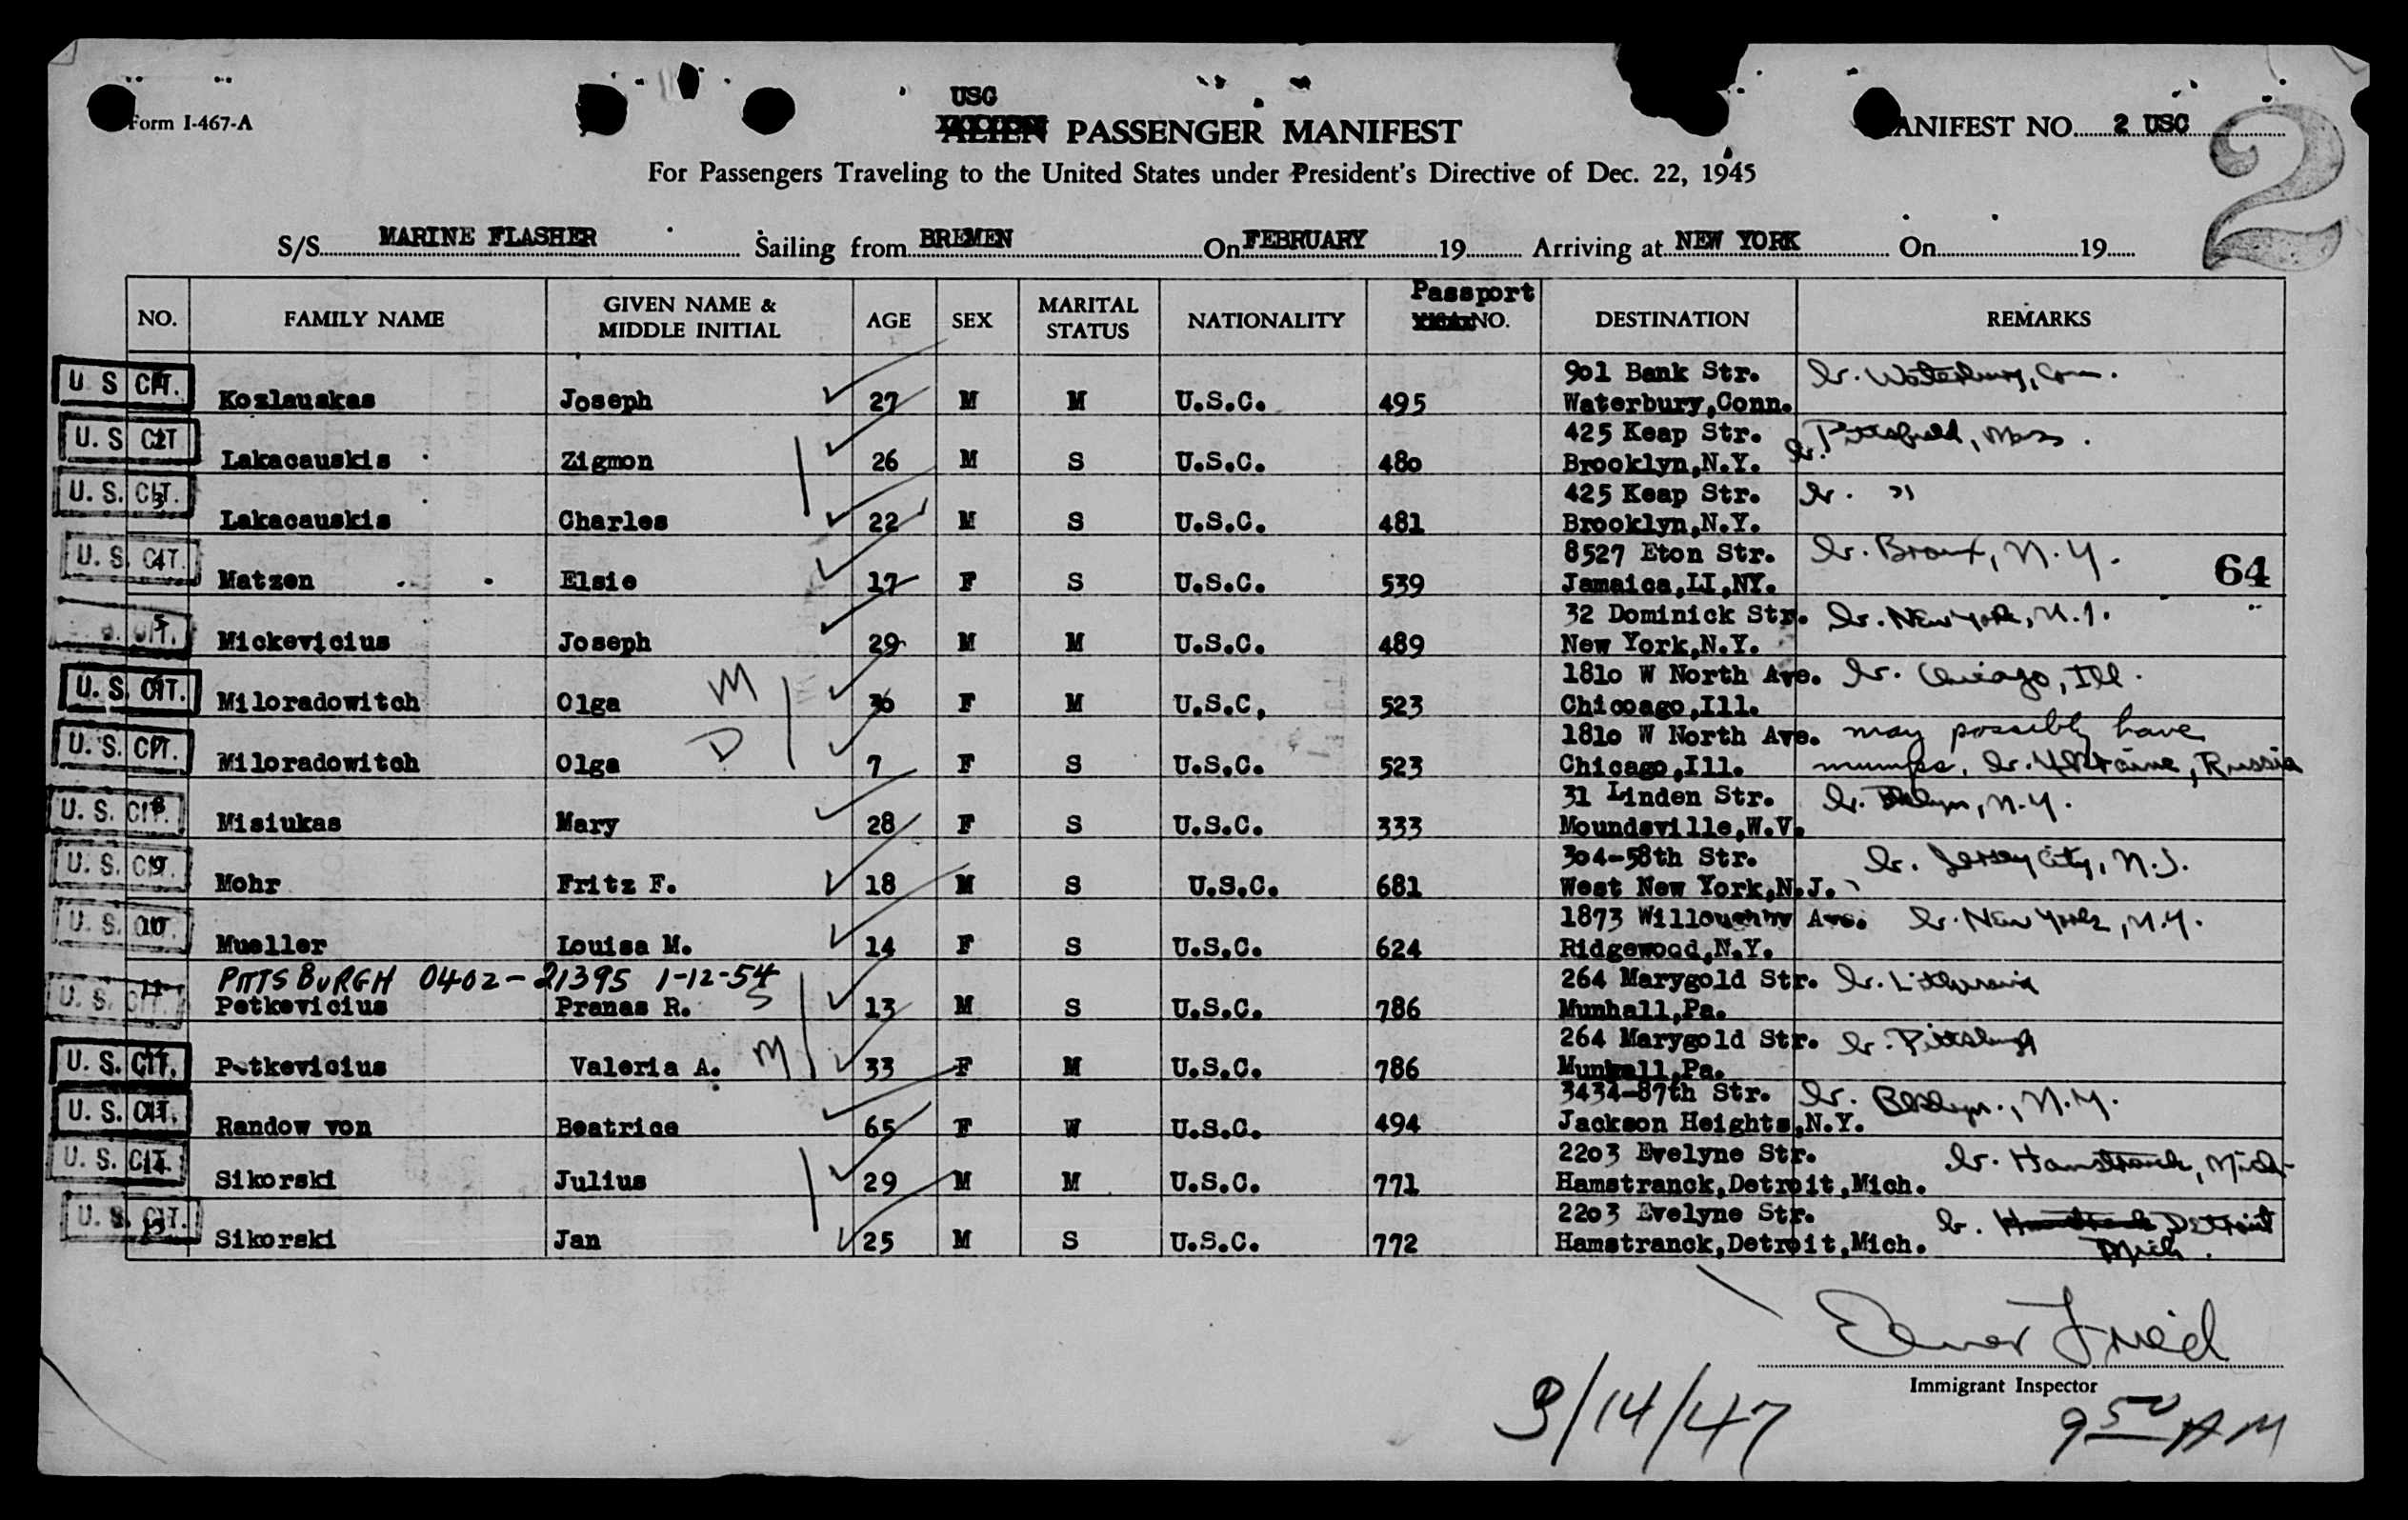 Form I-467-A
USC
ALIEN PASSENGER MANIFEST
MANIFEST NO. 2 USC
2
For Passengers Traveling to the United States under President's Directive of Dec. 22, 1945
S/S MARINE FLASHER Sailing from BREMEN On FEBRUARY 19 Arriving at NEW YORK On 19
NO. FAMILY NAME GIVEN NAME & MIDDLE INITIAL AGE SEX MARITAL STATUS NATIONALITY Passport NO. DESTINATION REMARKS
U. S. CIT. Kozlauskas Joseph 27 M M U.S.C. 495 901 Bank Str. Waterbury,Conn. br. Waterbury, Conn.
U. S. CIT 2 Lakacauskis Zigmon 26 M S U.S.C. 480 425 Keap Str. Brooklyn,N.Y. br. Pittsfield, Mass.
U. S. CIT. 3 Lakacauskis Charles 22 M S U.S.C. 481 425 Keap Str. Brooklyn,N.Y. br. "
U. S. CIT. 4 Matzen Elsie 17 F S U.S.C. 539 8527 Eton Str. Jamaica,LI,NY. br. Bronx, N.Y.
64
U. S. CIT. 5 Mickevicius Joseph 29 M M U.S.C. 489 32 Dominick Str. New York,N.Y. br. New York, N.Y.
U. S. CIT. Miloradowitch Olga M 36 F M U.S.C, 523 1810 W North Ave. Chicoago,Ill. br. Chicago, Ill.
U. S. CIT. 7 Miloradowitch Olga D 7 F S U.S.C. 523 1810 W North Ave. Chicago,Ill. may possibly have mumps. br. Ukraine, Russia
U. S. CIT. 8 Misiukas Mary 28 F S U.S.C. 333 31 Linden Str. Moundsville,W.V. br. Bklyn, N.Y.
U. S. CIT. 9 Mohr Fritz F. 18 M S U.S.C. 681 304-58th Str. West New York,N.J. br. Jersey City, N.J.
U. S. CIT. 10 Mueller Louisa M. 14 F S U.S.C. 624 1873 Willoughby Ave. Ridgewood,N.Y. br. New York, N.Y.
PITTSBURGH 0402-21395 1-12-54
U. S. CIT. 11 Petkevicius Pranas R. S 13 M S U.S.C. 786 264 Marygold Str. Munhall,Pa. br. Lithuania
U. S. CIT. Petkevicius Valeria A. M 33 F M U.S.C. 786 264 Marygold Str. Munhall,Pa. br. Pittsburgh
U. S. CIT. Randow von Beatrice 65 F W U.S.C. 494 3434-87th Str. Jackson Heights,N.Y. br. Bklyn., N.Y.
U. S. CIT. 14 Sikorski Julius 29 M M U.S.C. 771 2203 Evelyne Str. Hamstranck,Detroit,Mich. br. Hamstranck, Mich
U. S. CIT. 15 Sikorski Jan 25 M S U.S.C. 772 2203 Evelyne Str. Hamstranck,Detroit,Mich. br. Detroit Mich.
Elmer Fried
Immigrant Inspector
3/14/47
9 50 AM